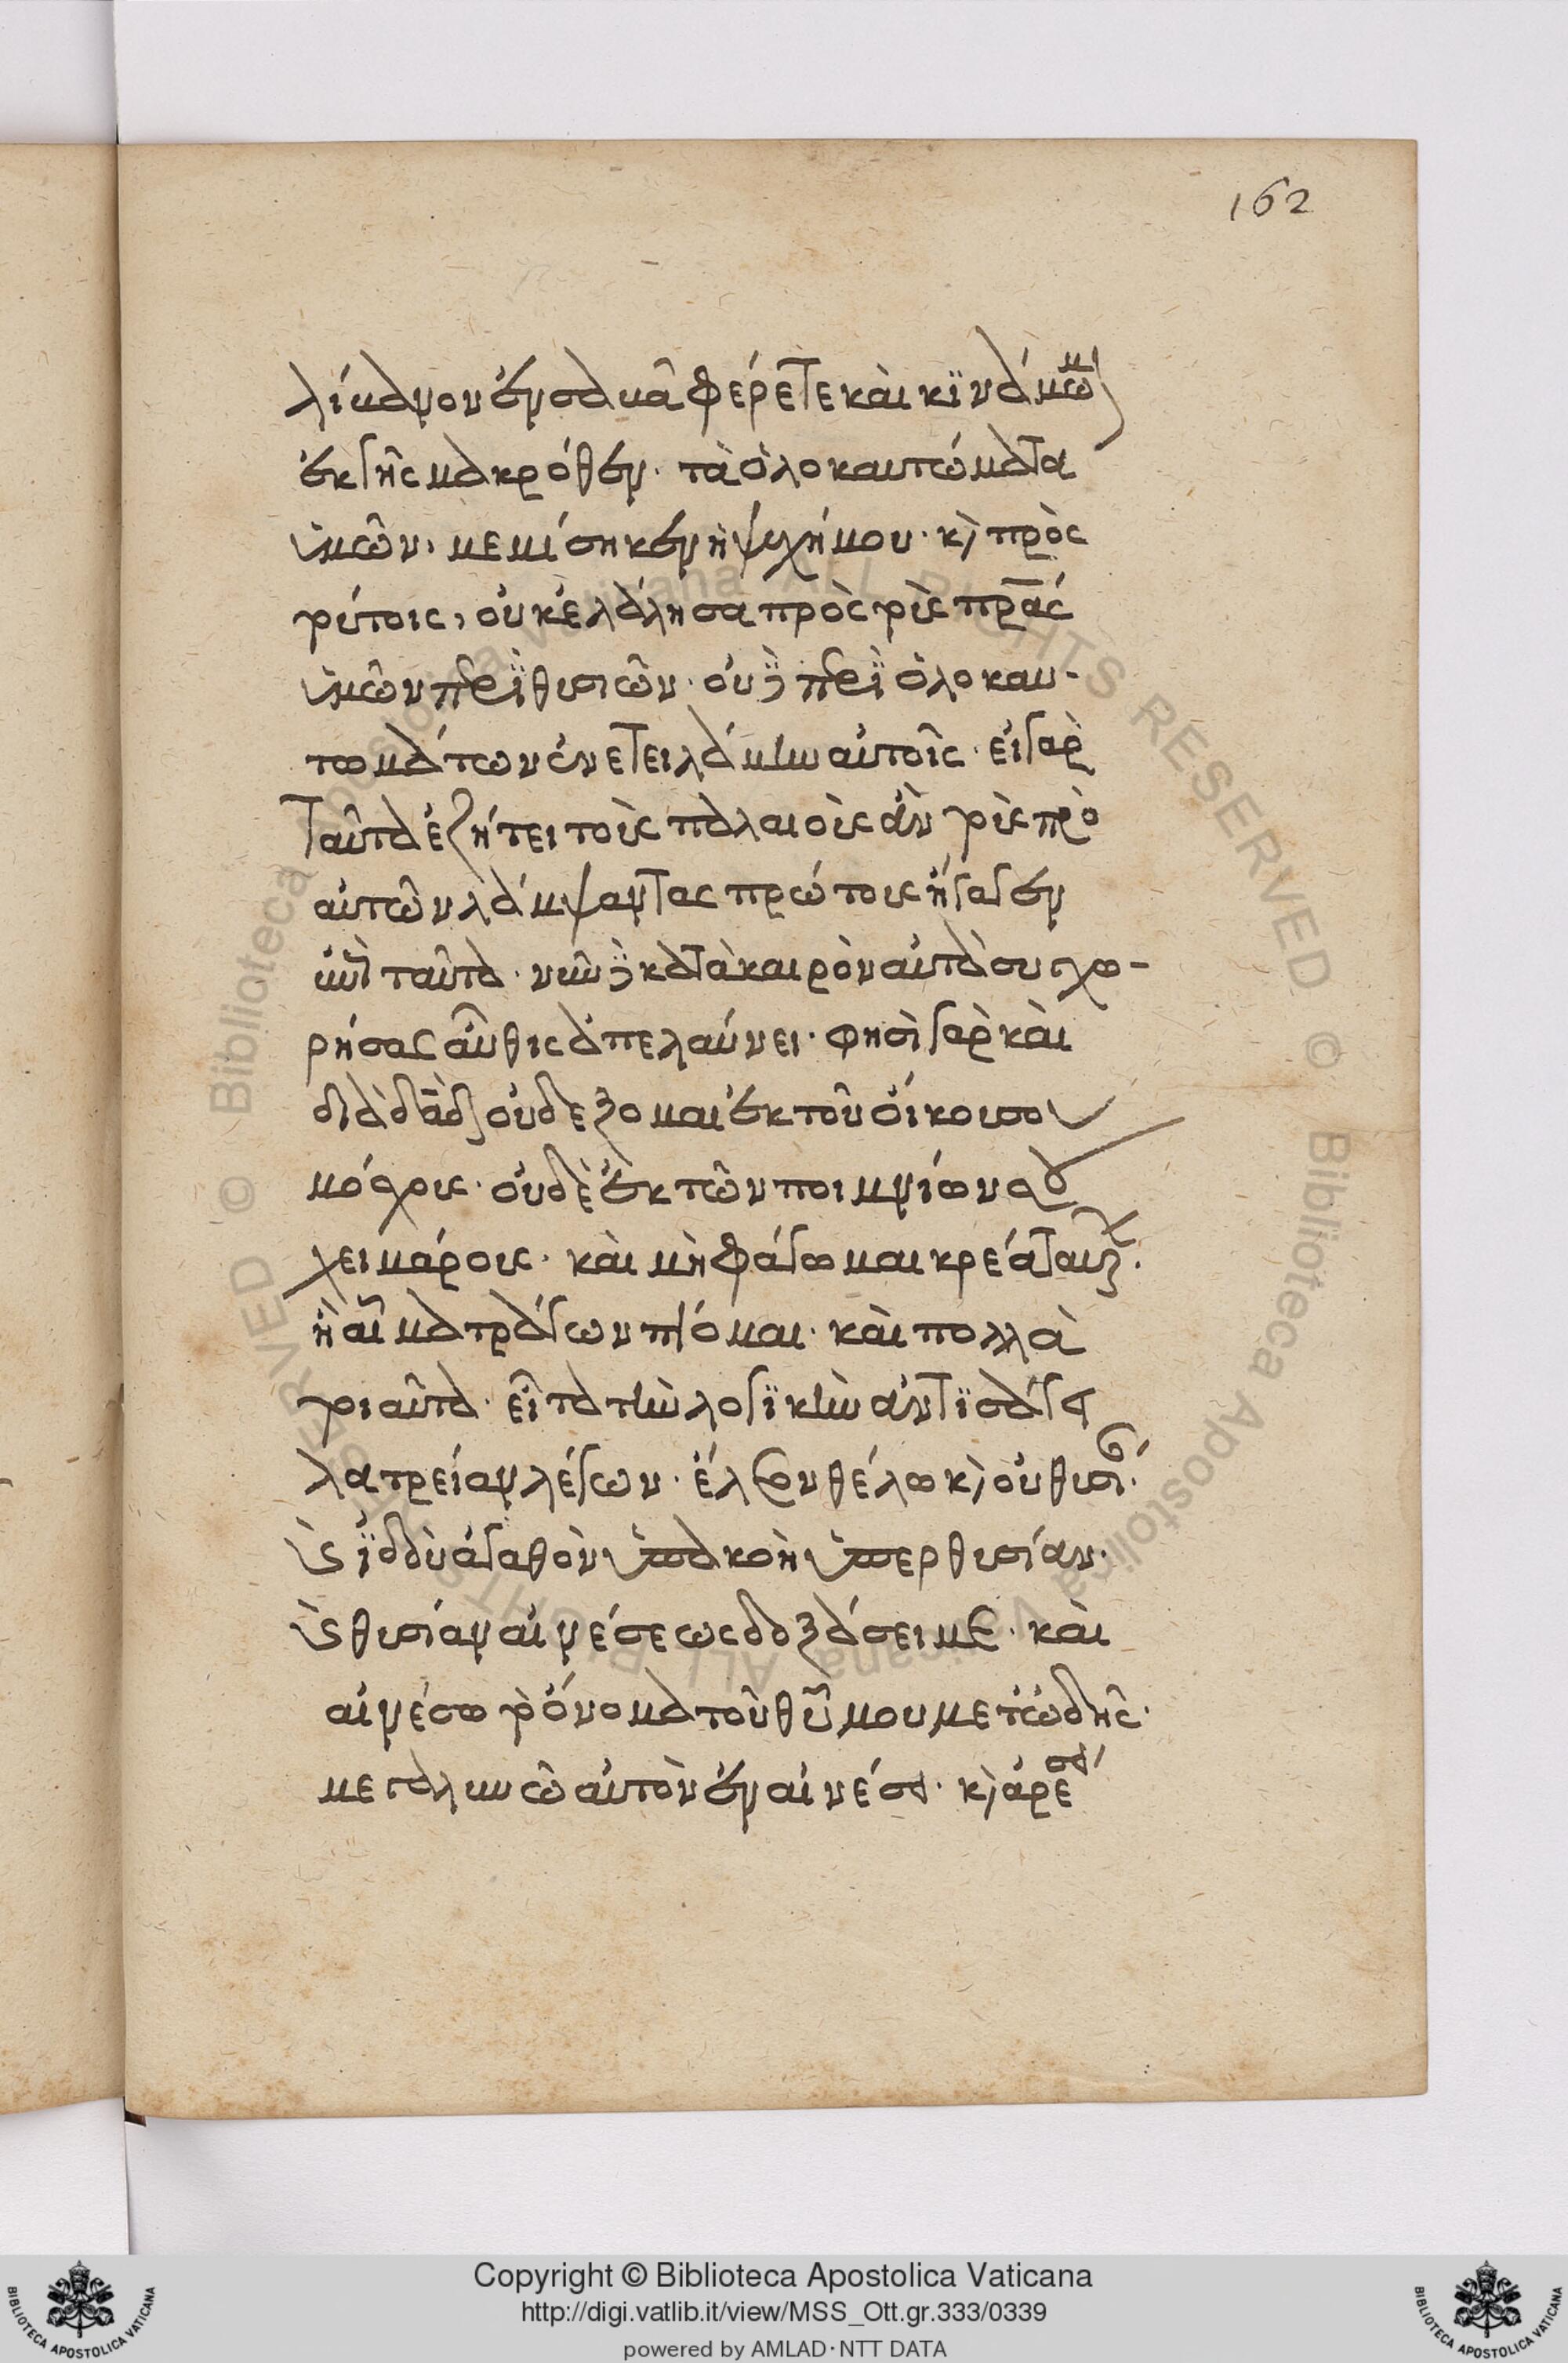 162
λίβανον ἐκ σαβᾶ φέρετε καὶ κϊνάμωμ(ον)
ἐκ γῆς μακρόθεν· τὰ ὁλοκαυτώματα
ὑμῶν. μεμίσηκεν ἡ ψυχή μου· κ(αὶ) πρὸς
τούτοις, οὐκ ἐλάλησα πρὸς τοὺς πρ̅ας
ὑμῶν περὶ θυσιῶν· οὐδὲ περὶ ὁλοκαυ-
τωμάτων ἐνετειλάμην αὐτοῖς· εἰ γὰρ
ταῦτα ἐζήτει τοὺς παλαιοὺς ἂν τοὺς πρὸ
αὐτῶν λάμψαντας πρώτους ἤγαγεν
ἐπὶ ταῦτα· νῦν δὲ κατὰ καιρὸν αὐτὰ συγχω-
ρήσας αὖθις ἀπελαύνει· φησὶ γὰρ καὶ
διὰ δα̅δ οὐ δέξομαι ἐκ τοῦ οἴκου σου
μόσχους· οὐδὲ ἐκ τῶν ποιμνίων σου
χειμάρους· καὶ μὴ φάγωμαι κρέα ταύρων·
ἢ αἷμα τράγων πίομαι· καὶ πολλὰ
τοιαῦτα· εἶτα τὴν λογϊκὴν ἀντϊσάγει
λατρείαν λέγων· ἔλεον θέλω κ(αὶ) οὐ θυσίαν·
κ(αὶ) ϊδοὺ ἀγαθὸν ὑπακοὴ ὑπὲρ θυσίαν·
κ(αὶ) θυσίαν αἰνέσεως δοξάσει με· καὶ
αἰνέσω τὸ ὄνομα τοῦ θῦ μου μετ' ὠδῆς·
μεγαλυνῶ αὐτὸν ἐν αἰνέσει· κ(αὶ) ἀρέσει
Copyright © Biblioteca Apostolica Vaticana
http://digi.vatlib.it/view/MSS_Ott.gr.333/0339
powered by AMLAD·NTT DATA